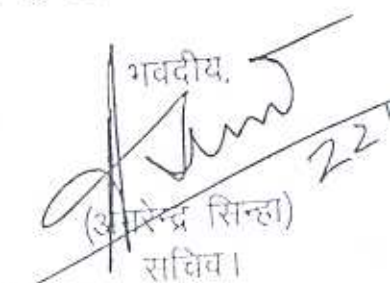 भवदीय,
22
(अमरेन्द्र सिन्हा)
सचिव।